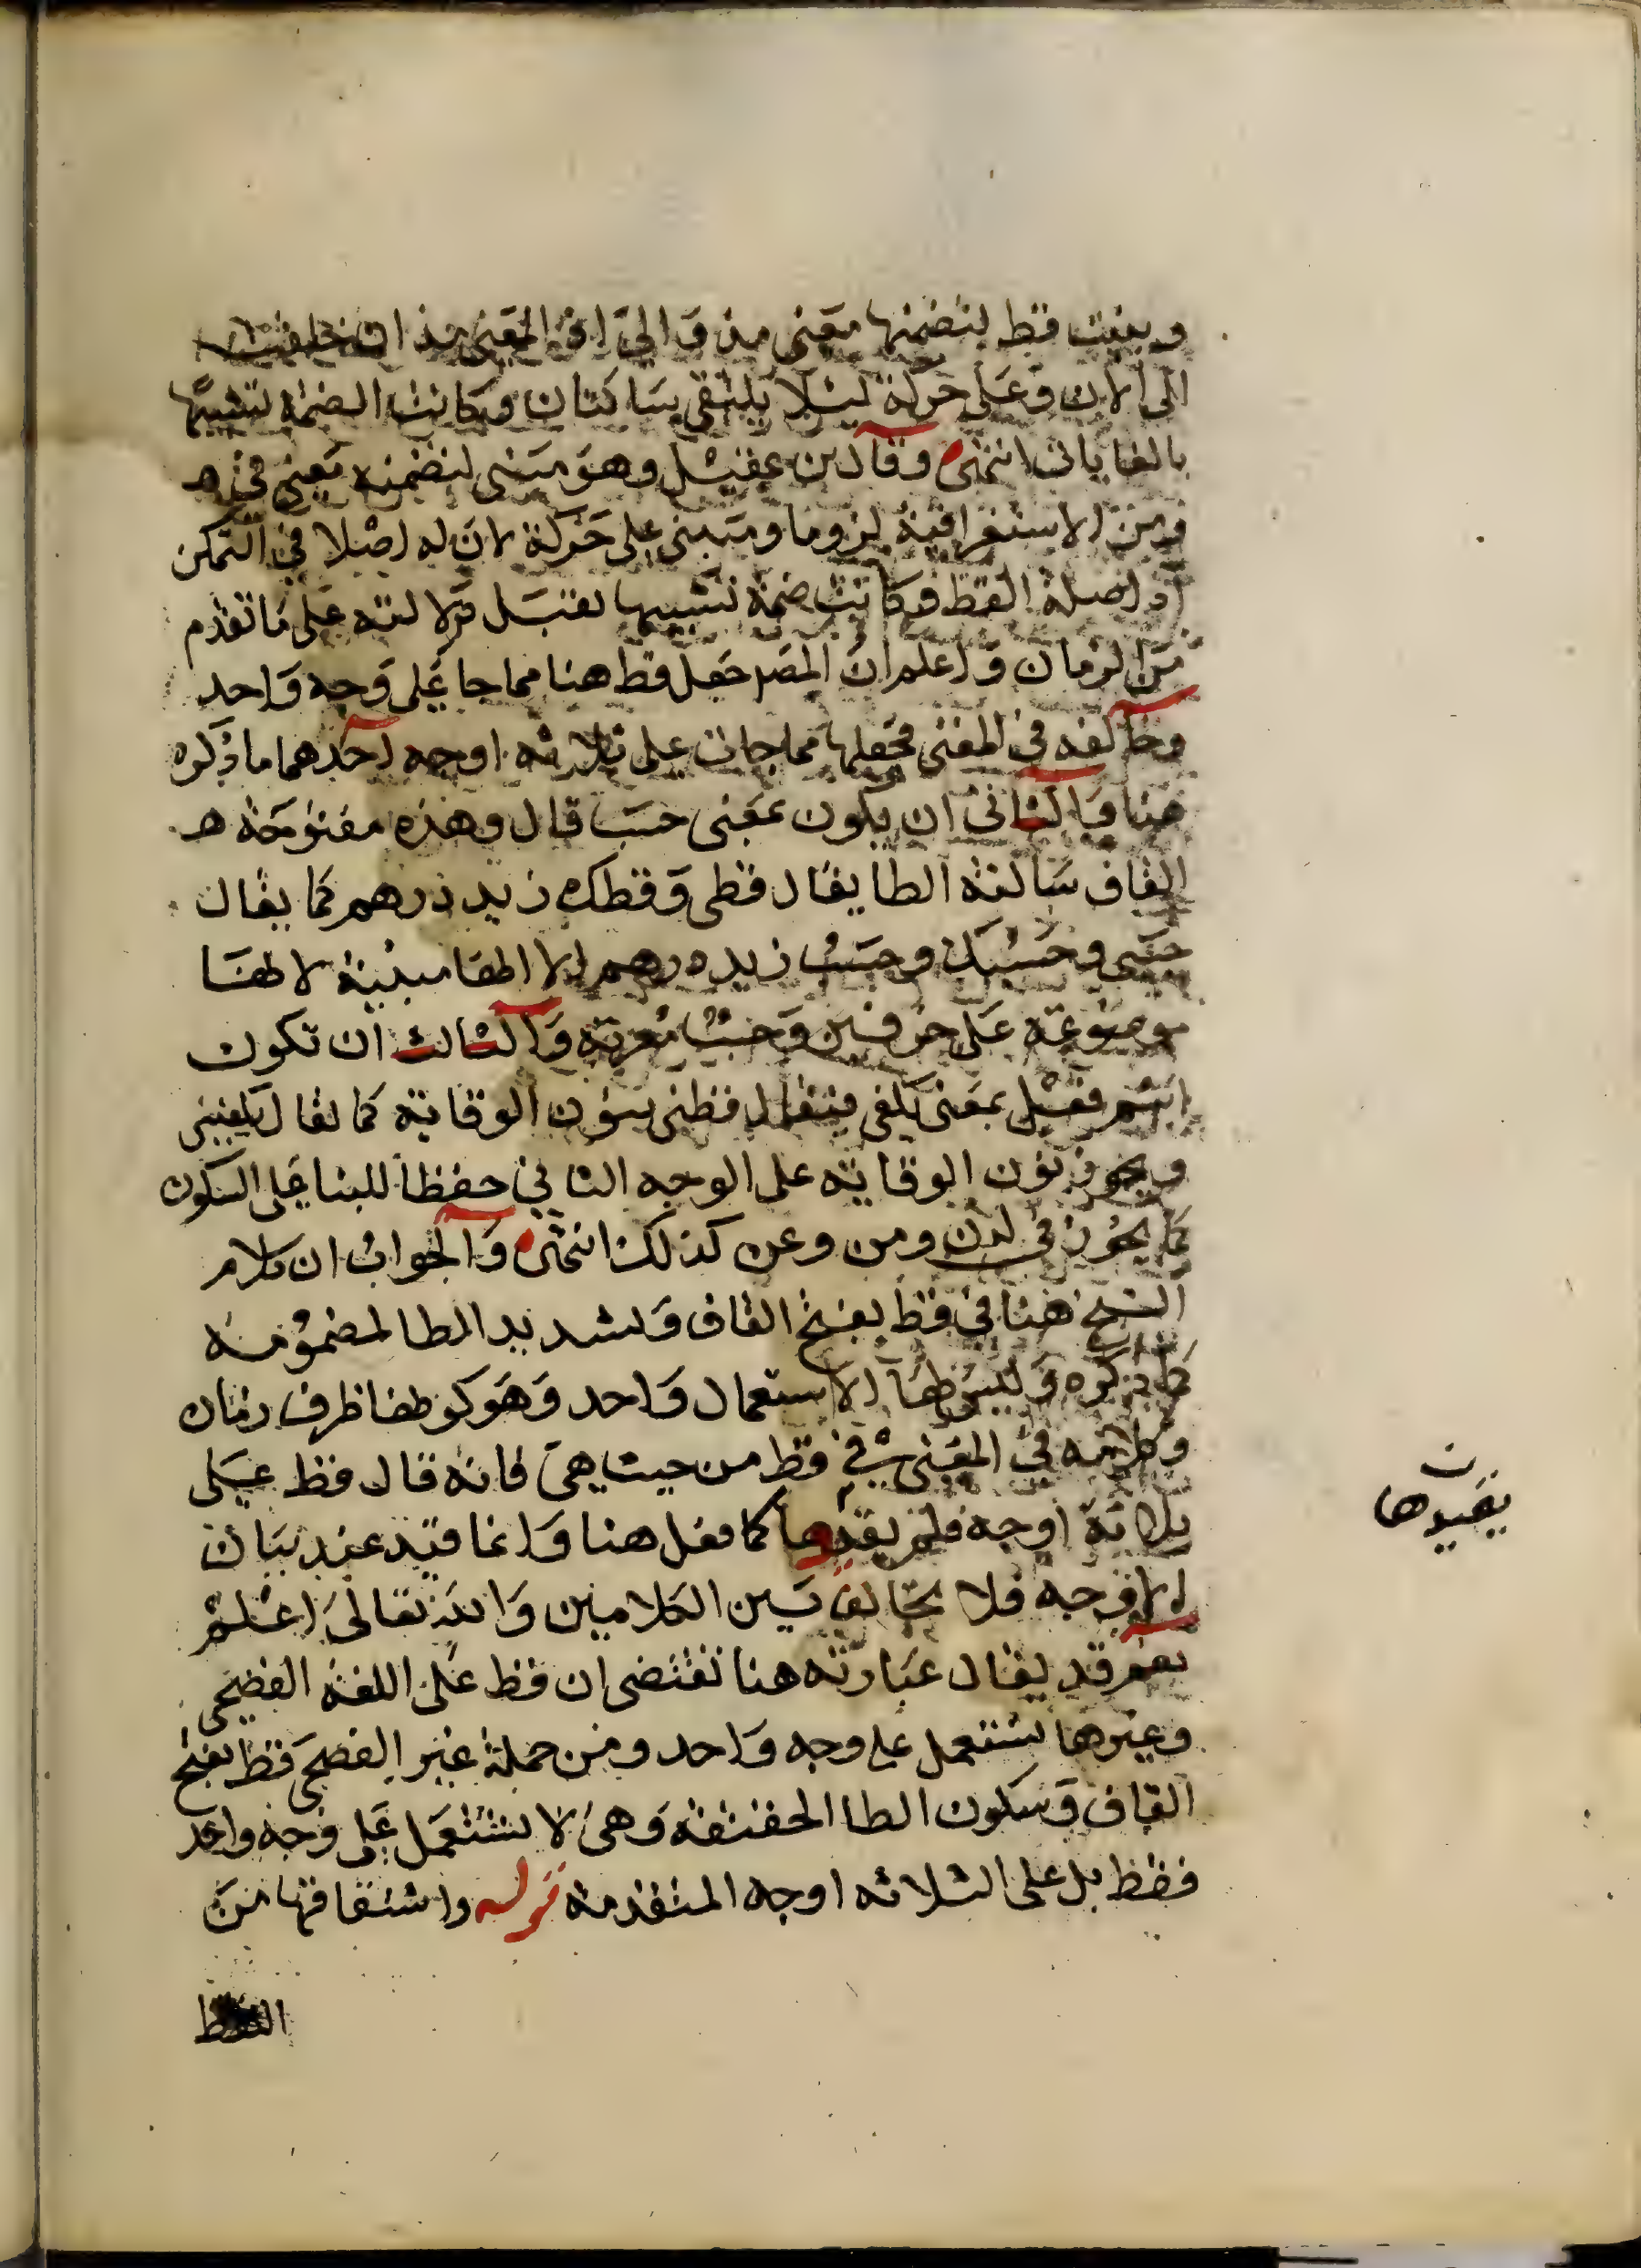 وبنيت قط لتضمنها معنى مذ والى اذ المعنى مذ ان خلقت
الى الان وعلى حركة ليلا يلتقى ساكنان وكانت الضمة تشبيها
بالغايات انتهى وقال بن عقيل وهو مبنى لتضمنه معنى في
ومن الاستغراقية لزوما ومبنى على حركة لان له اصلا في التمكن
اذ اصله القط وكانت ضمة تشبيها بقبل لدلالته على ما تقدم
من الزمان واعلم ان المصر جعل قط هنا مما جا على وجه واحد
وخالفه في المغنى فجعلها مما جات على ثلاثه اوجه احدهما ما ذكره
هنا والثانى ان يكون بمعنى حسب قال وهذه مفتوحة
القاف ساكنه الطا يقال قطى وقطك زيد درهم كما يقال
حسبى وحسبك وحسب زيد درهم الا انها مبنية لانها
موضوعة على حرفين وحسب معربة والثالث ان تكون
اسم فعل بمعنى يكفى فيقال قطنى بنون الوقاية كما يقال يكفينى
ويجوز نون الوقاية على الوجه الثاني حفظا للبنا على السكون
كما يجوز في لدن ومن وعن كذلك انتهى والجواب ان كلام
الشيخ هنا في قط بفتح القاف وتشديد الطا المضمومه
كما ذكره وليس لها الا استعمال واحد وهو كونها ظرف زمان
وكلامه في المغنى في قط من حيث هى فانه قال قط على
ثلاثة اوجه فلم يقيدها كما فعل هنا وانما قيد عند بيان
الاوجه فلا تخالف بين الكلامين والله تعالى اعلم
نعم قد يقال عبارته هنا تقتضى ان قط على اللغة الفصحى
وغيرها تستعمل على وجه واحد ومن جملة غير الفصحى قط بفتح
القاف وسكون الطا الخفيفة وهى لا تستعمل على وجه واحد
فقط بل على الثلاثه اوجه المتقدمة قوله واشتقاقها من
القط
ن
يقيدها